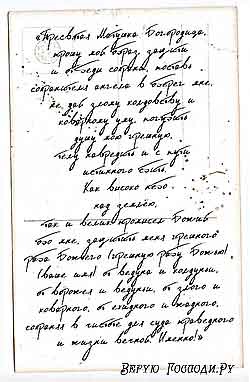 «Пресвятая Матушка Богородица,
прошу мой образ, защити
и от беды сохрани, поставь
сохранителя ангела в оберег мне,
не дай злому колдовству и
коварному уму, погубить
душу мою грешную,
телу навредить и с пути
истинного сбить.
Как высоко небо
над землёю,
так и велик промысел Божий
обо мне, защитить меня грешного
раба Божьего (грешную рабу Божью)
(ваше имя) от ведуна и колдуньи,
от ворожея и ведуньи, от злого и
коварного, от ехидного и жадного,
сохраняя в чистоте для суда праведного
и жизни вечной. Аминь!»
Верую Господи.РУ